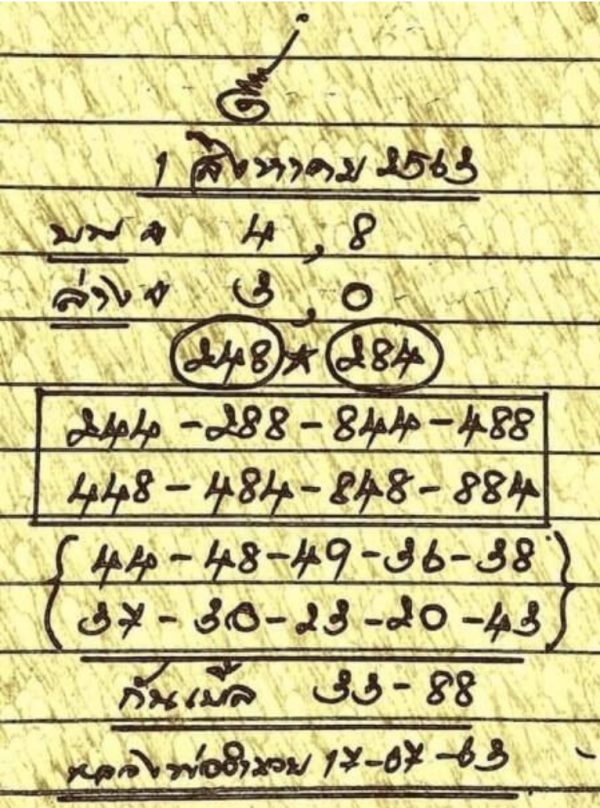 1 สิงหาคม 2563
บน 4, 8
ล่าง 3, 0
248 * 284
244 - 288 - 844 - 488
448 - 484 - 848 - 884
44 - 48 - 49 - 36 - 38
37 - 30 - 23 - 20 - 43
กันเบิ้ล 33 - 88
หลวงพ่ออำนวย 17-07-63